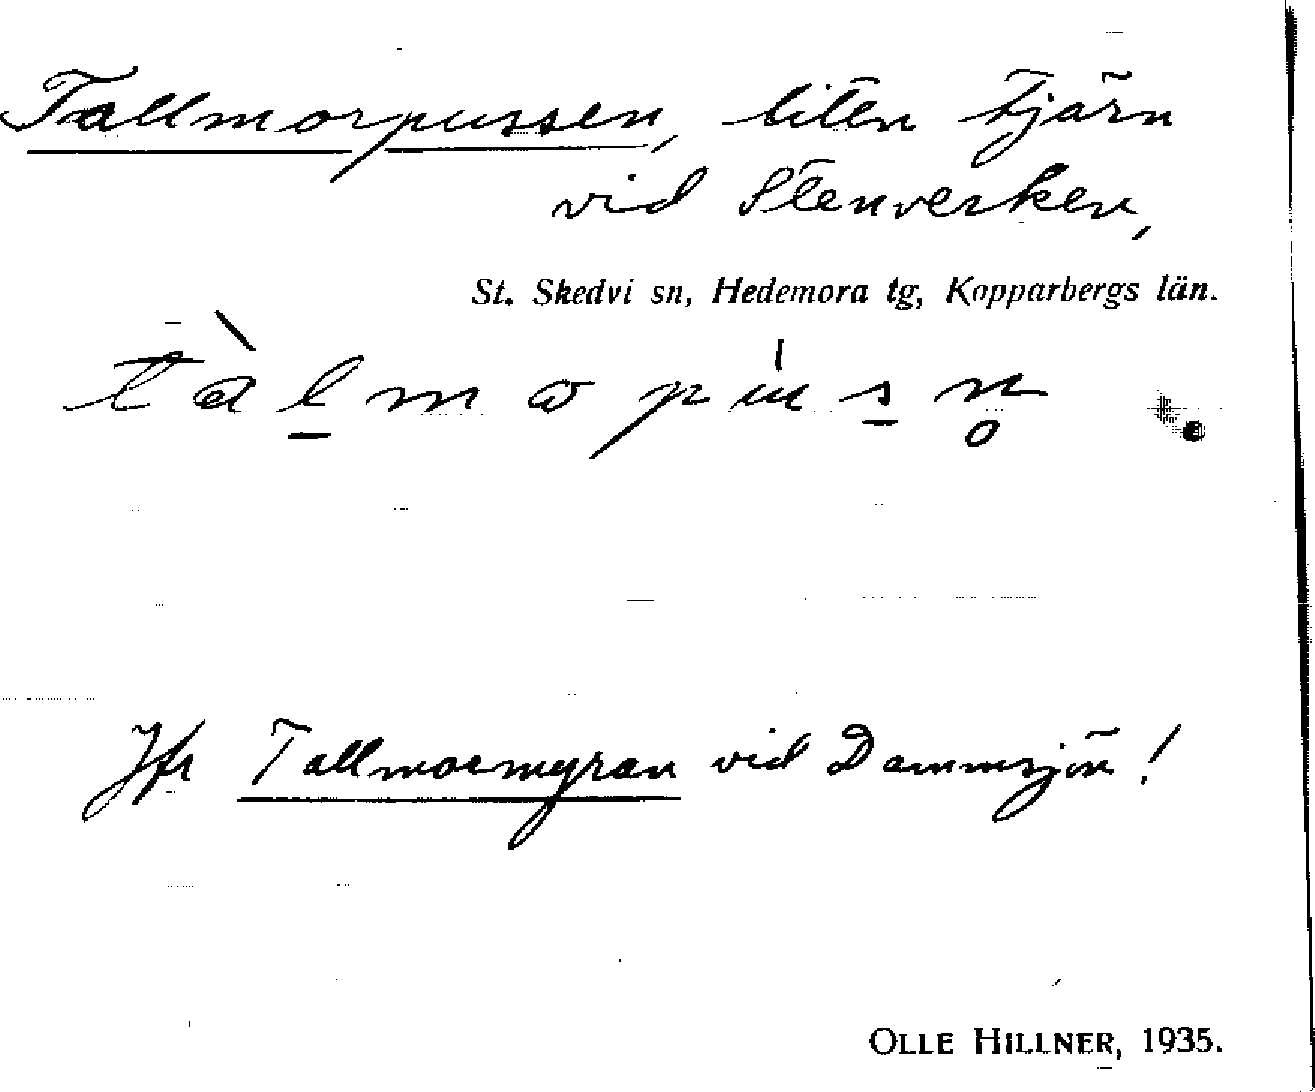 Tallmorpussen, liten tjärn
vid Stenverken,
St. Skedvi sn, Hedemora tg, Kopparbergs län.
tàl̠mɷpús̠n̥
Jfr Tallmormyran vid Dammsjön!
OLLE HILLNER, 1935.